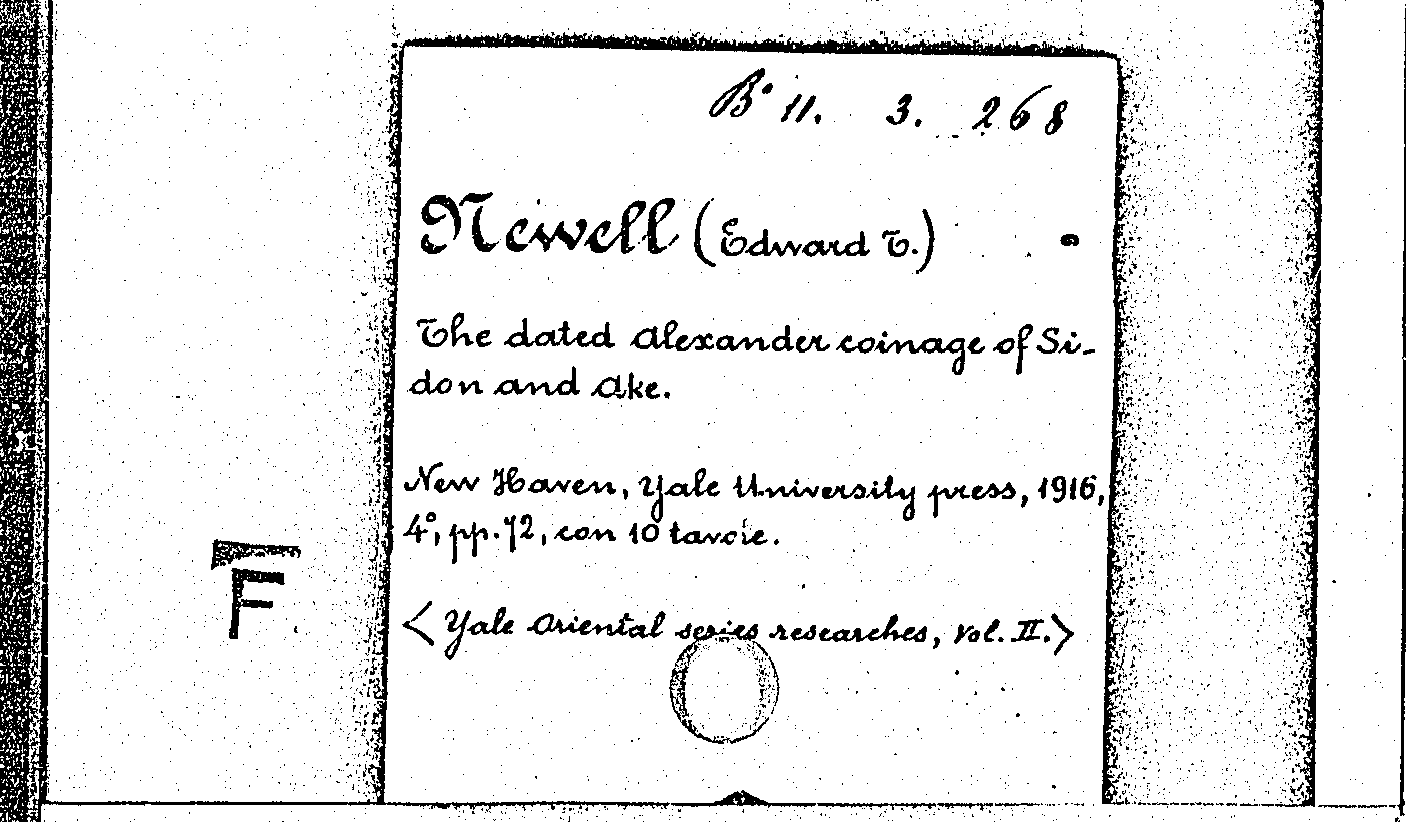 B° 11. 3. 268
Newell (Edward T.)
The dated Alexander coinage of Si-
don and Ake.
New Haven, Yale University press, 1916,
4°, pp. 72, con 10 tavole.
F
<Yale Oriental series researches, vol. II.>